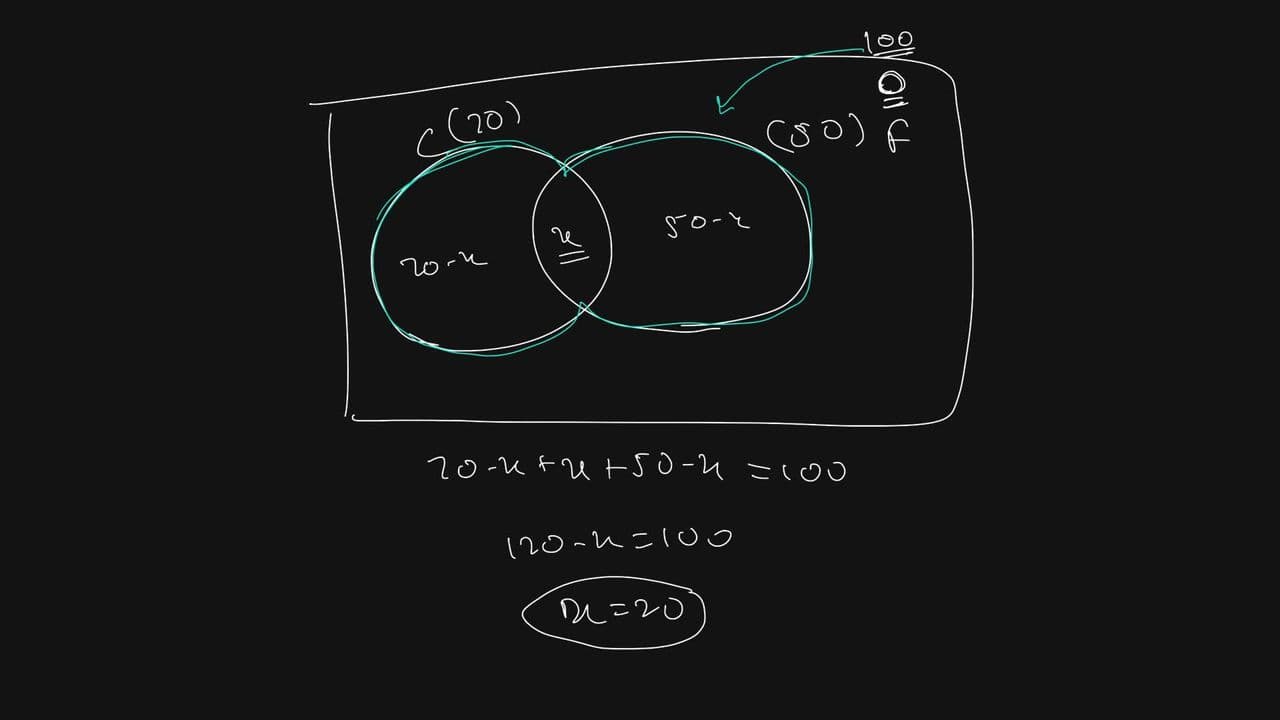 100
0
C (70)
(50) F
x
50-x
70-x
70-x+x+50-x=100
120-x=100
x=20